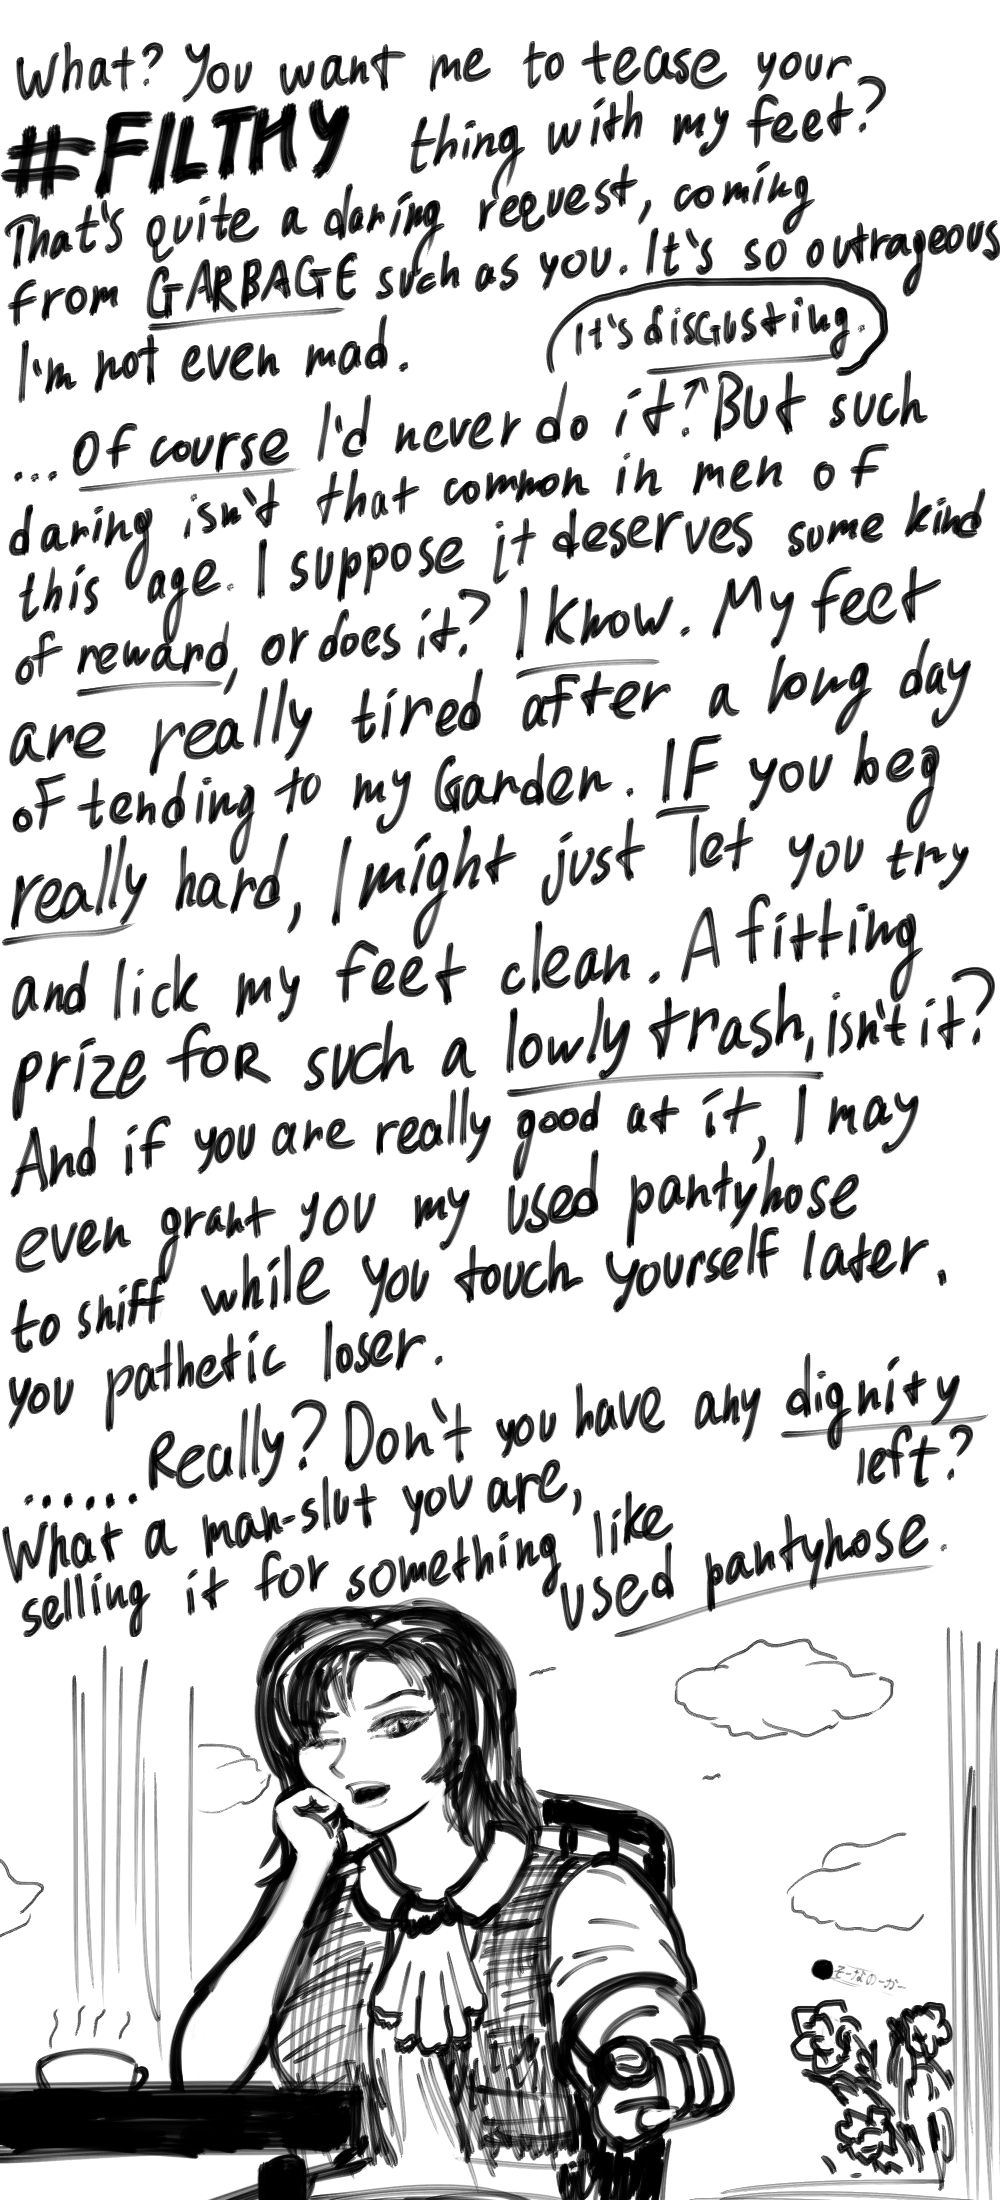 What? You want me to tease your
#FILTHY thing with my feet?
That's quite a daring request, coming
from GARBAGE such as you. It's so outrageous
I'm not even mad. It's disgusting.
...Of course I'd never do it? But such
daring isn't that common in men of
this age. I suppose it deserves some kind
of reward, or does it? I know. My feet
are really tired after a long day
of tending to my Garden. IF you beg
really hard, I might just let you try
and lick my feet clean. A fitting
prize foR such a lowly trash, isn't it?
And if you are really good at it, I may
even grant you my used pantyhose
to sniff while you touch yourself later.
you pathetic loser.
......Really? Don't you have any dignity
left?
What a man-slut you are,
selling it for something like
used pantyhose.
そーなのーかー